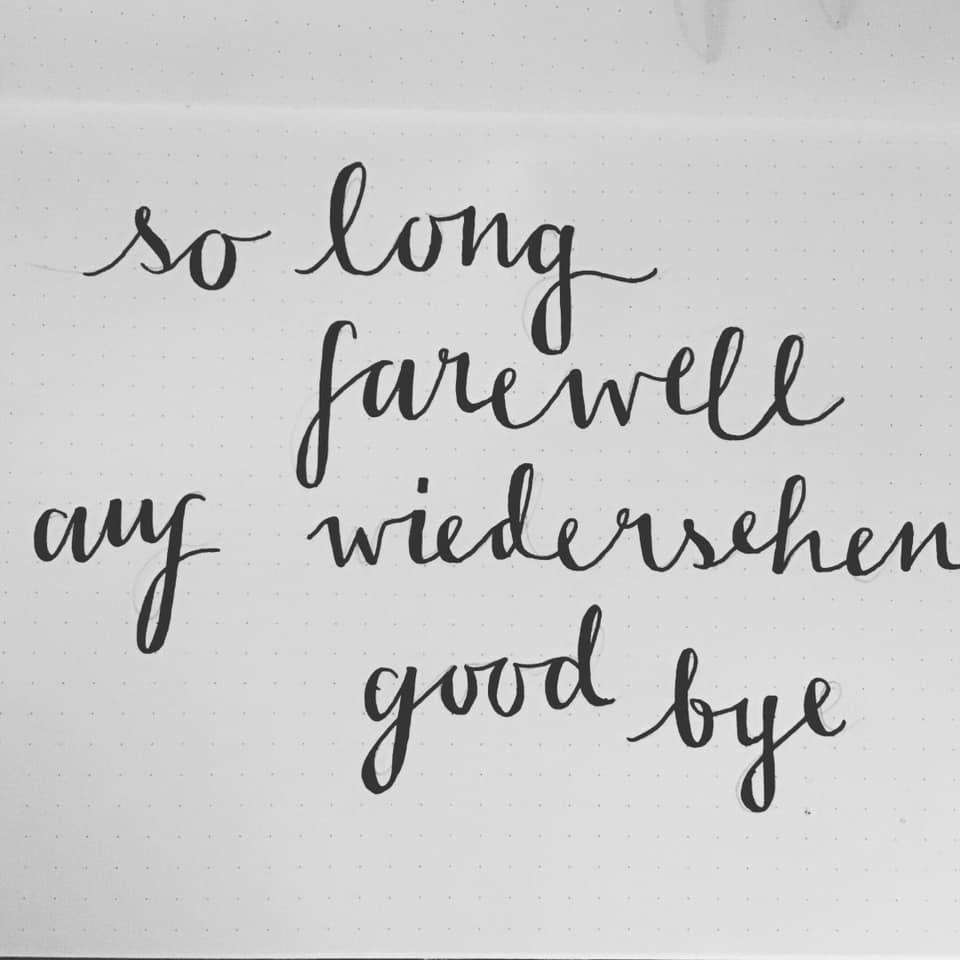 so long
farewell
auf wiedersehen
good bye